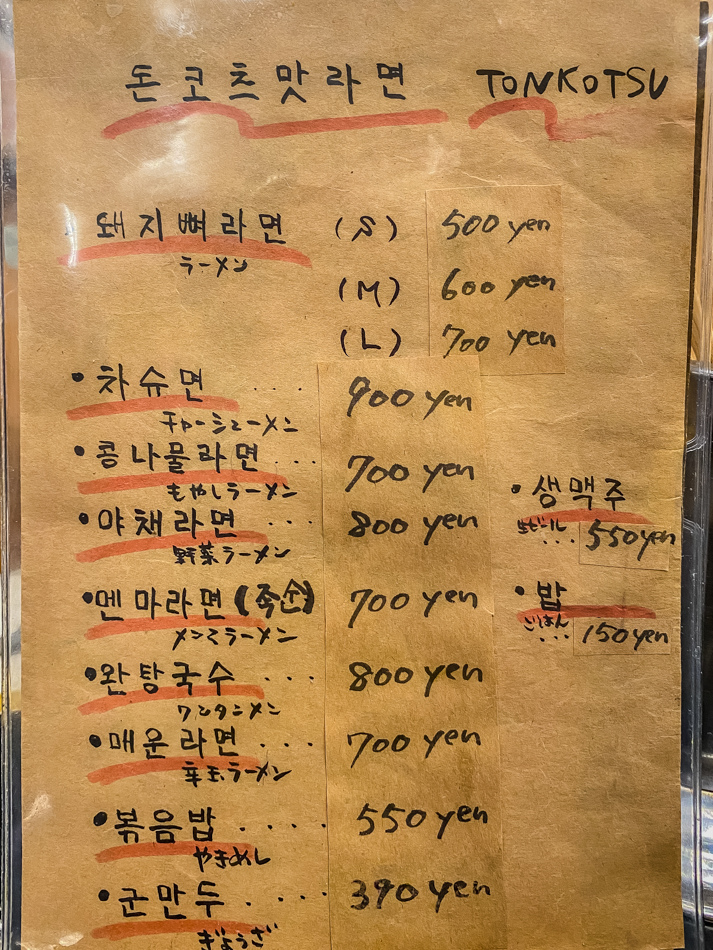 돈코츠맛라면 TONKOTSU
돼지뼈라면 (S) 500 yen
ラーメン
(M) 600 yen
(L) 700 yen
・차슈면 .... 900 yen
チャーシューメン
・콩나물라면 ... 700 yen
もやしラーメン
・야채라면 ... 800 yen
野菜ラーメン
・멘마라면 (죽순) 700 yen
メンマラーメン
・완탕국수 ... 800 yen
ワンタンメン
・매운라면 .... 700 yen
辛玉ラーメン
・볶음밥 .... 550 yen
やきめし
・군만두 .... 390 yen
ぎょうざ
・생맥주
生ビール ... 550 yen
・밥
ごはん ... 150 yen